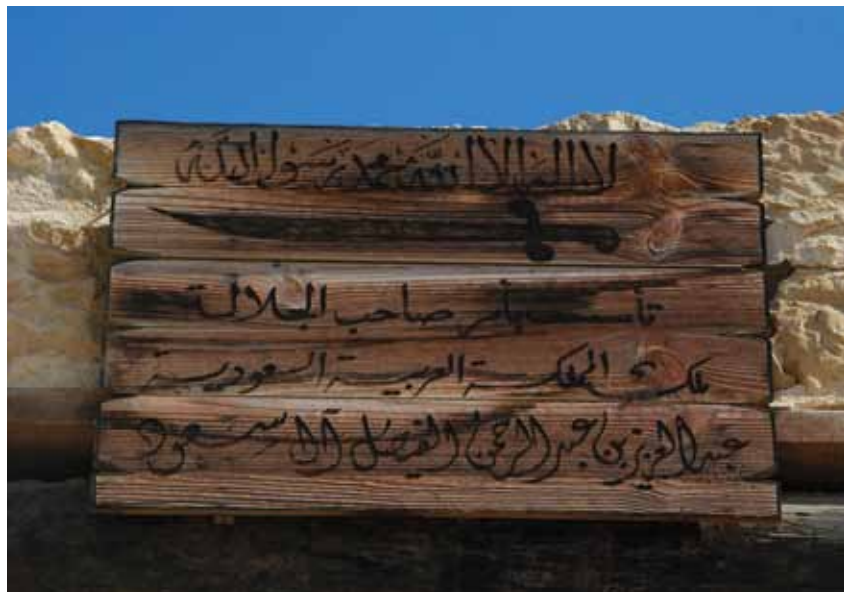 لا اله الا الله محمد رسول الله
تأسست بأمر صاحب الجلالة
ملك المملكة العربية السعودية
عبدالعزيز بن عبدالرحمن الفيصل آل سعود